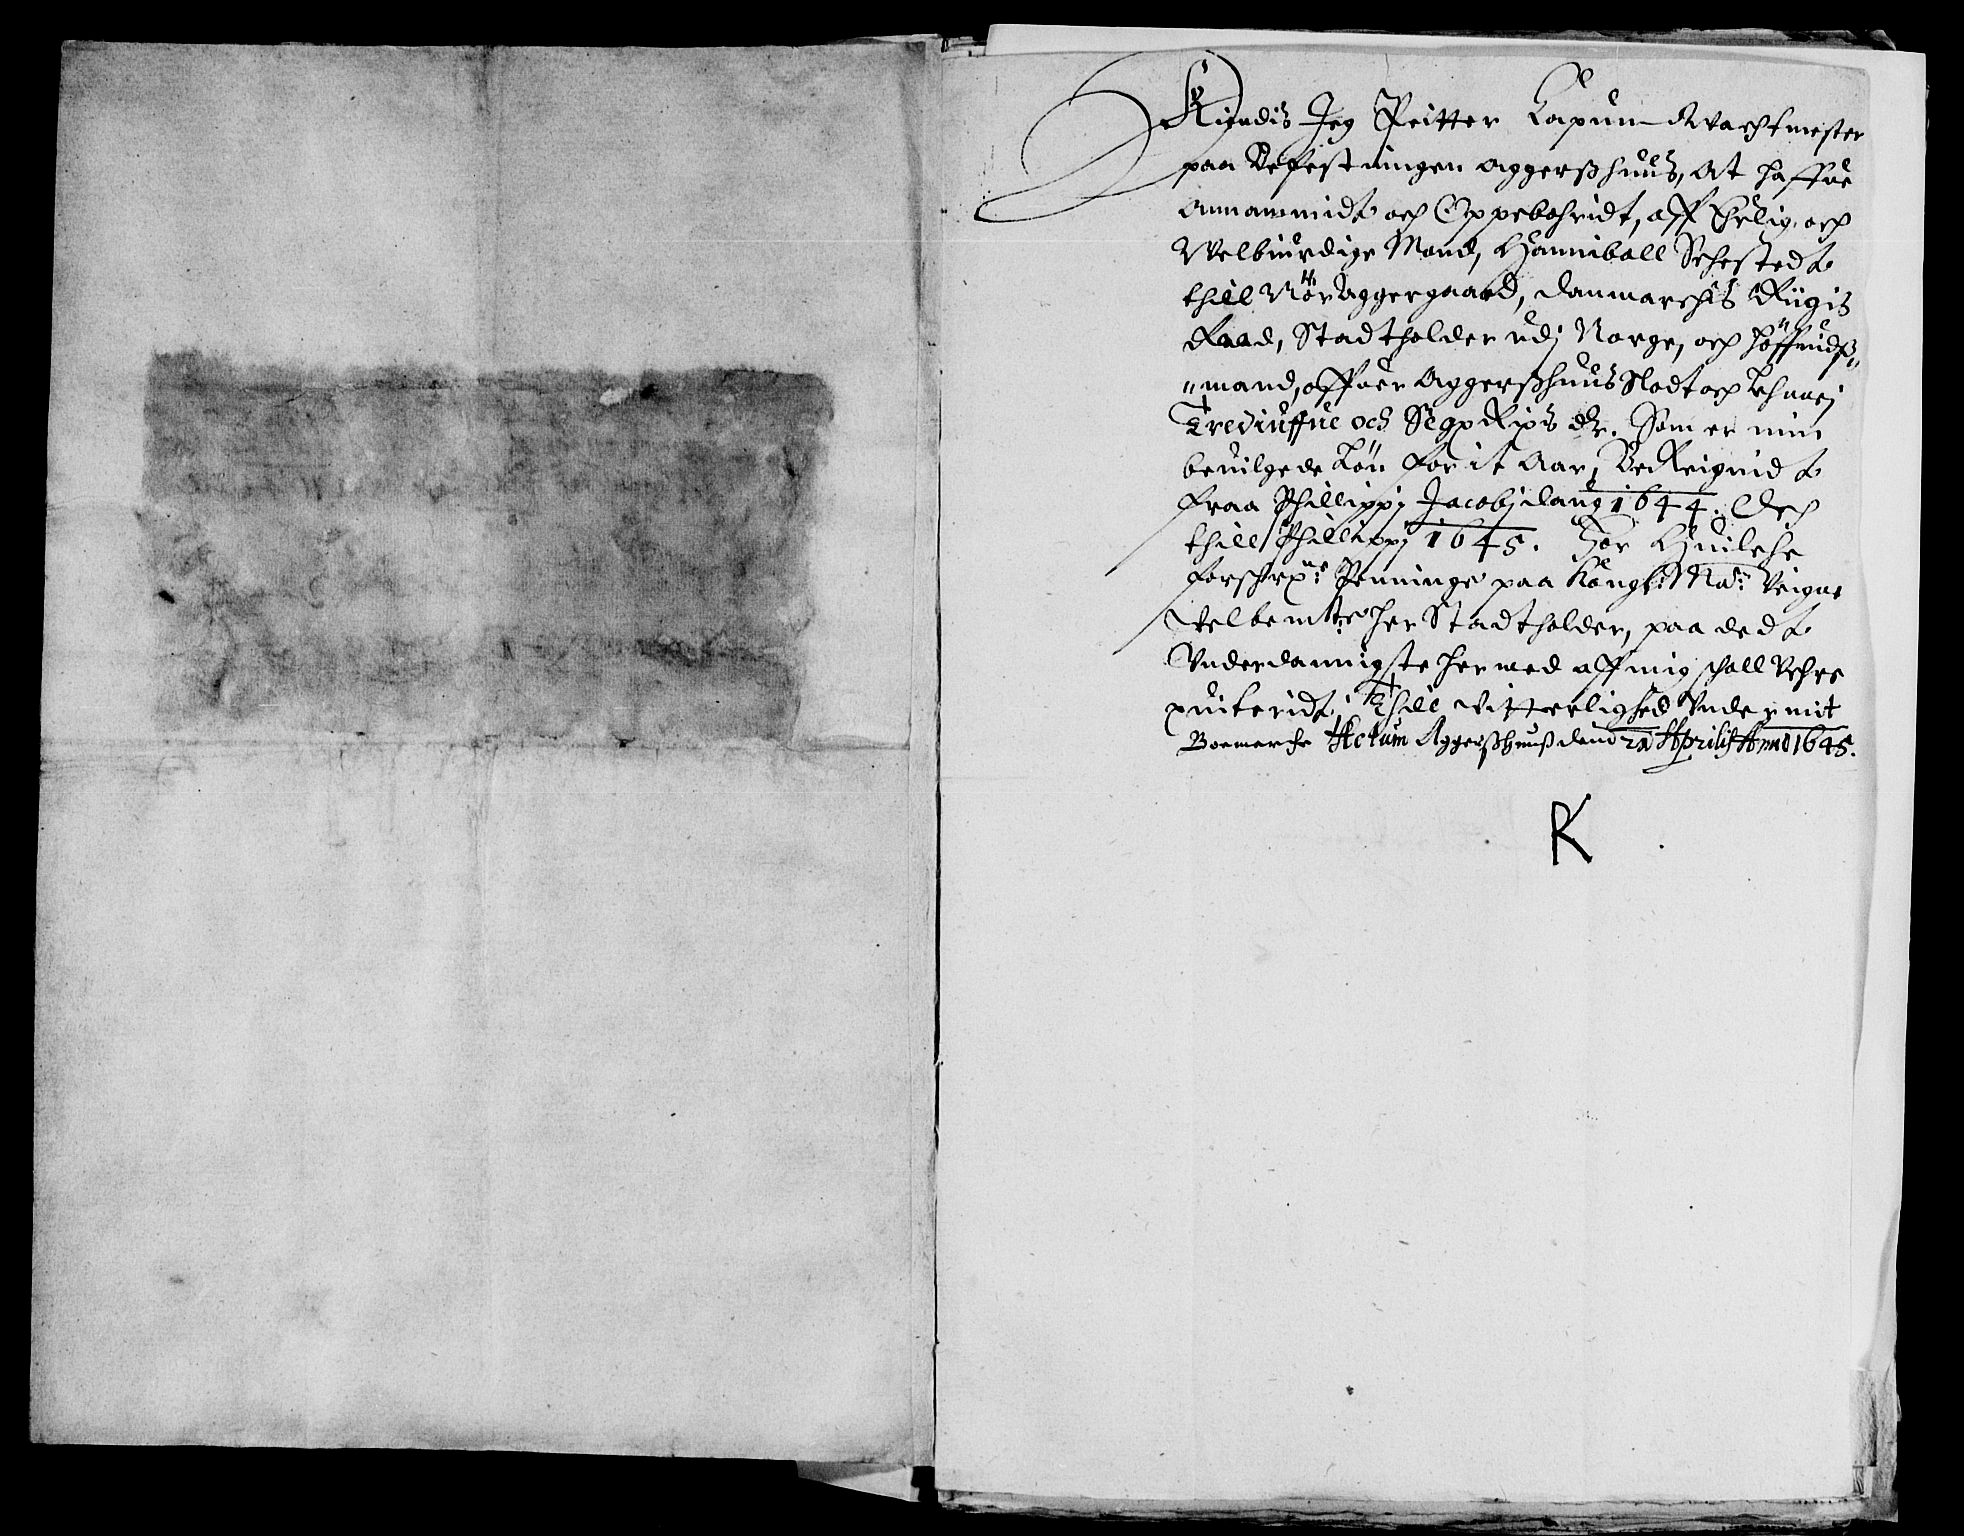 Kiendis Jeg Peitter Lapun Wachtmester
paa Befestningen Aggerßhuus, At haffue
Annammidt och Oppebohridt, aff Ehrlig och
Velbiurdige Mand, Hanniball Sehestedt
thill Nör Aggergaard, Danmarchis Riigis
Raad, Stadtholder udj Norge, och höffuidß„
„mand, offuer Aggerßhuus Slodt och Lehn
Trediuffue och Rixs dr. Som er min
beuilgede Lön for it Aar, Bereignidt
fraa Phillippj Jacobj dang 1644. Och
thill Phillippj 1645. For Huilche
forschrne: Penninge paa Kongl: Maÿ: Veigne
velbemte: her Stadtholder, paa dedt
Underdannigste hermed aff mig schall Vehre
quiteridt, Thill vitterlighed Under mit
Boemerche Actum Aggerßhuuß denn Aprilis Anno 1645.
R